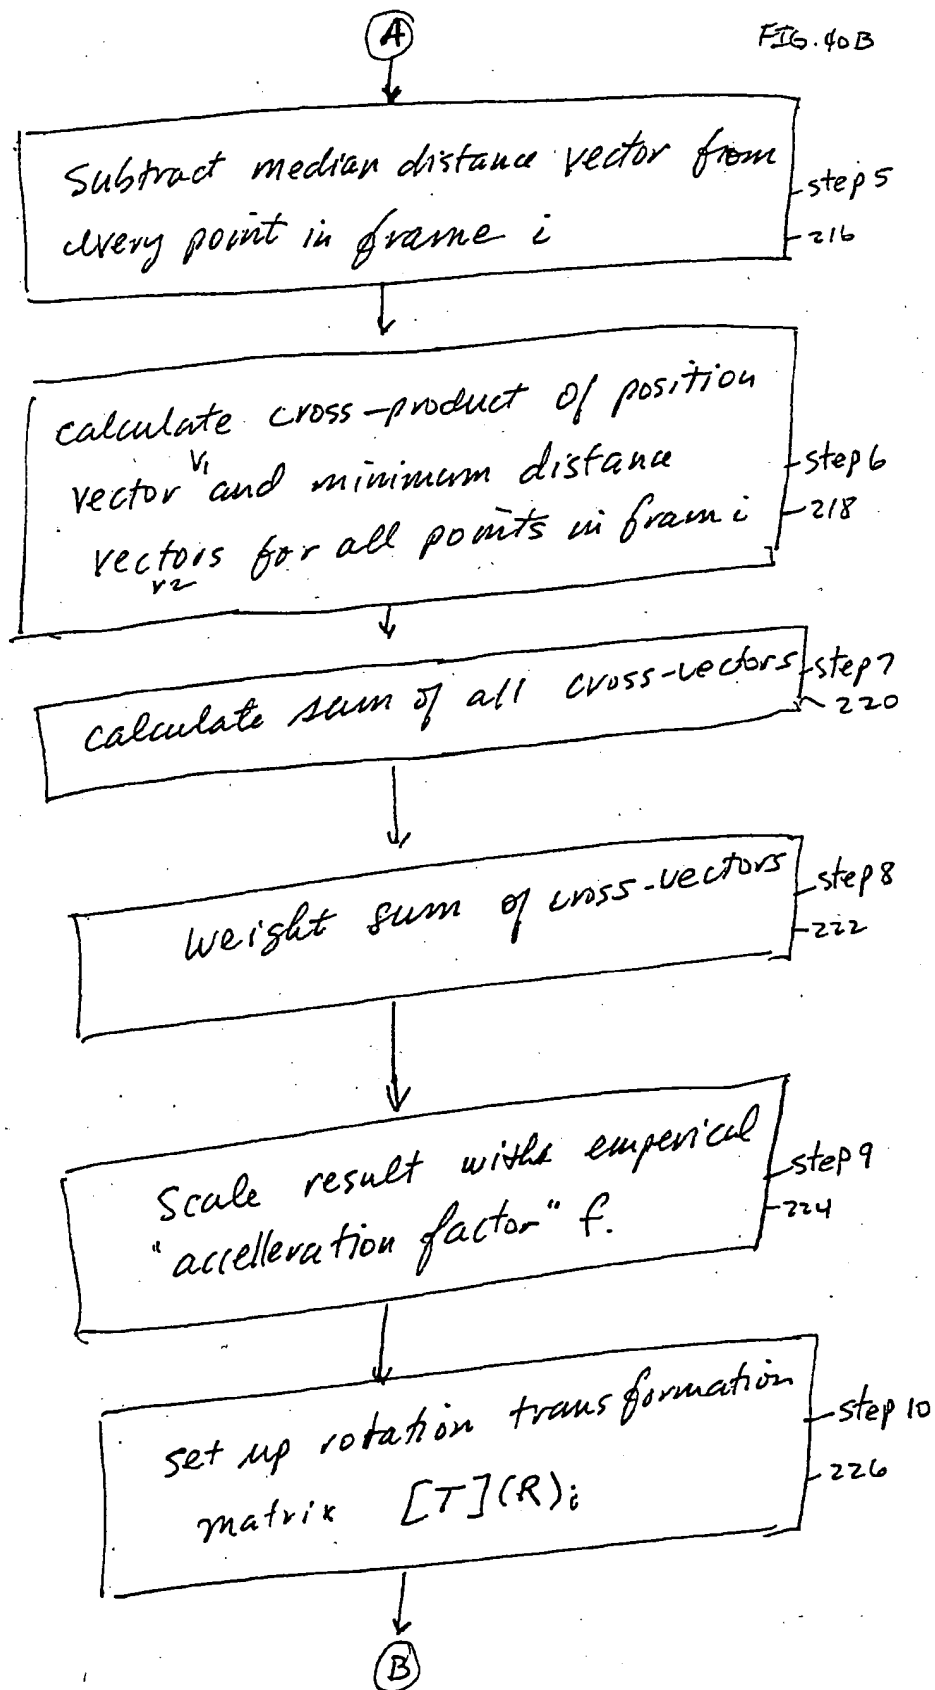 A
FIG. 40B
Subtract median distance vector from
every point in frame i
step 5
216
calculate cross-product of position
vector V1 and minimum distance
vectors V2 for all points in fram i
step 6
218
calculate sum of all cross-vectors
step 7
220
weight sum of cross-vectors
step 8
222
Scale result with emperical
"accelleration factor" f.
step 9
224
set up rotation transformation
matrix [T](R)i
step 10
226
B